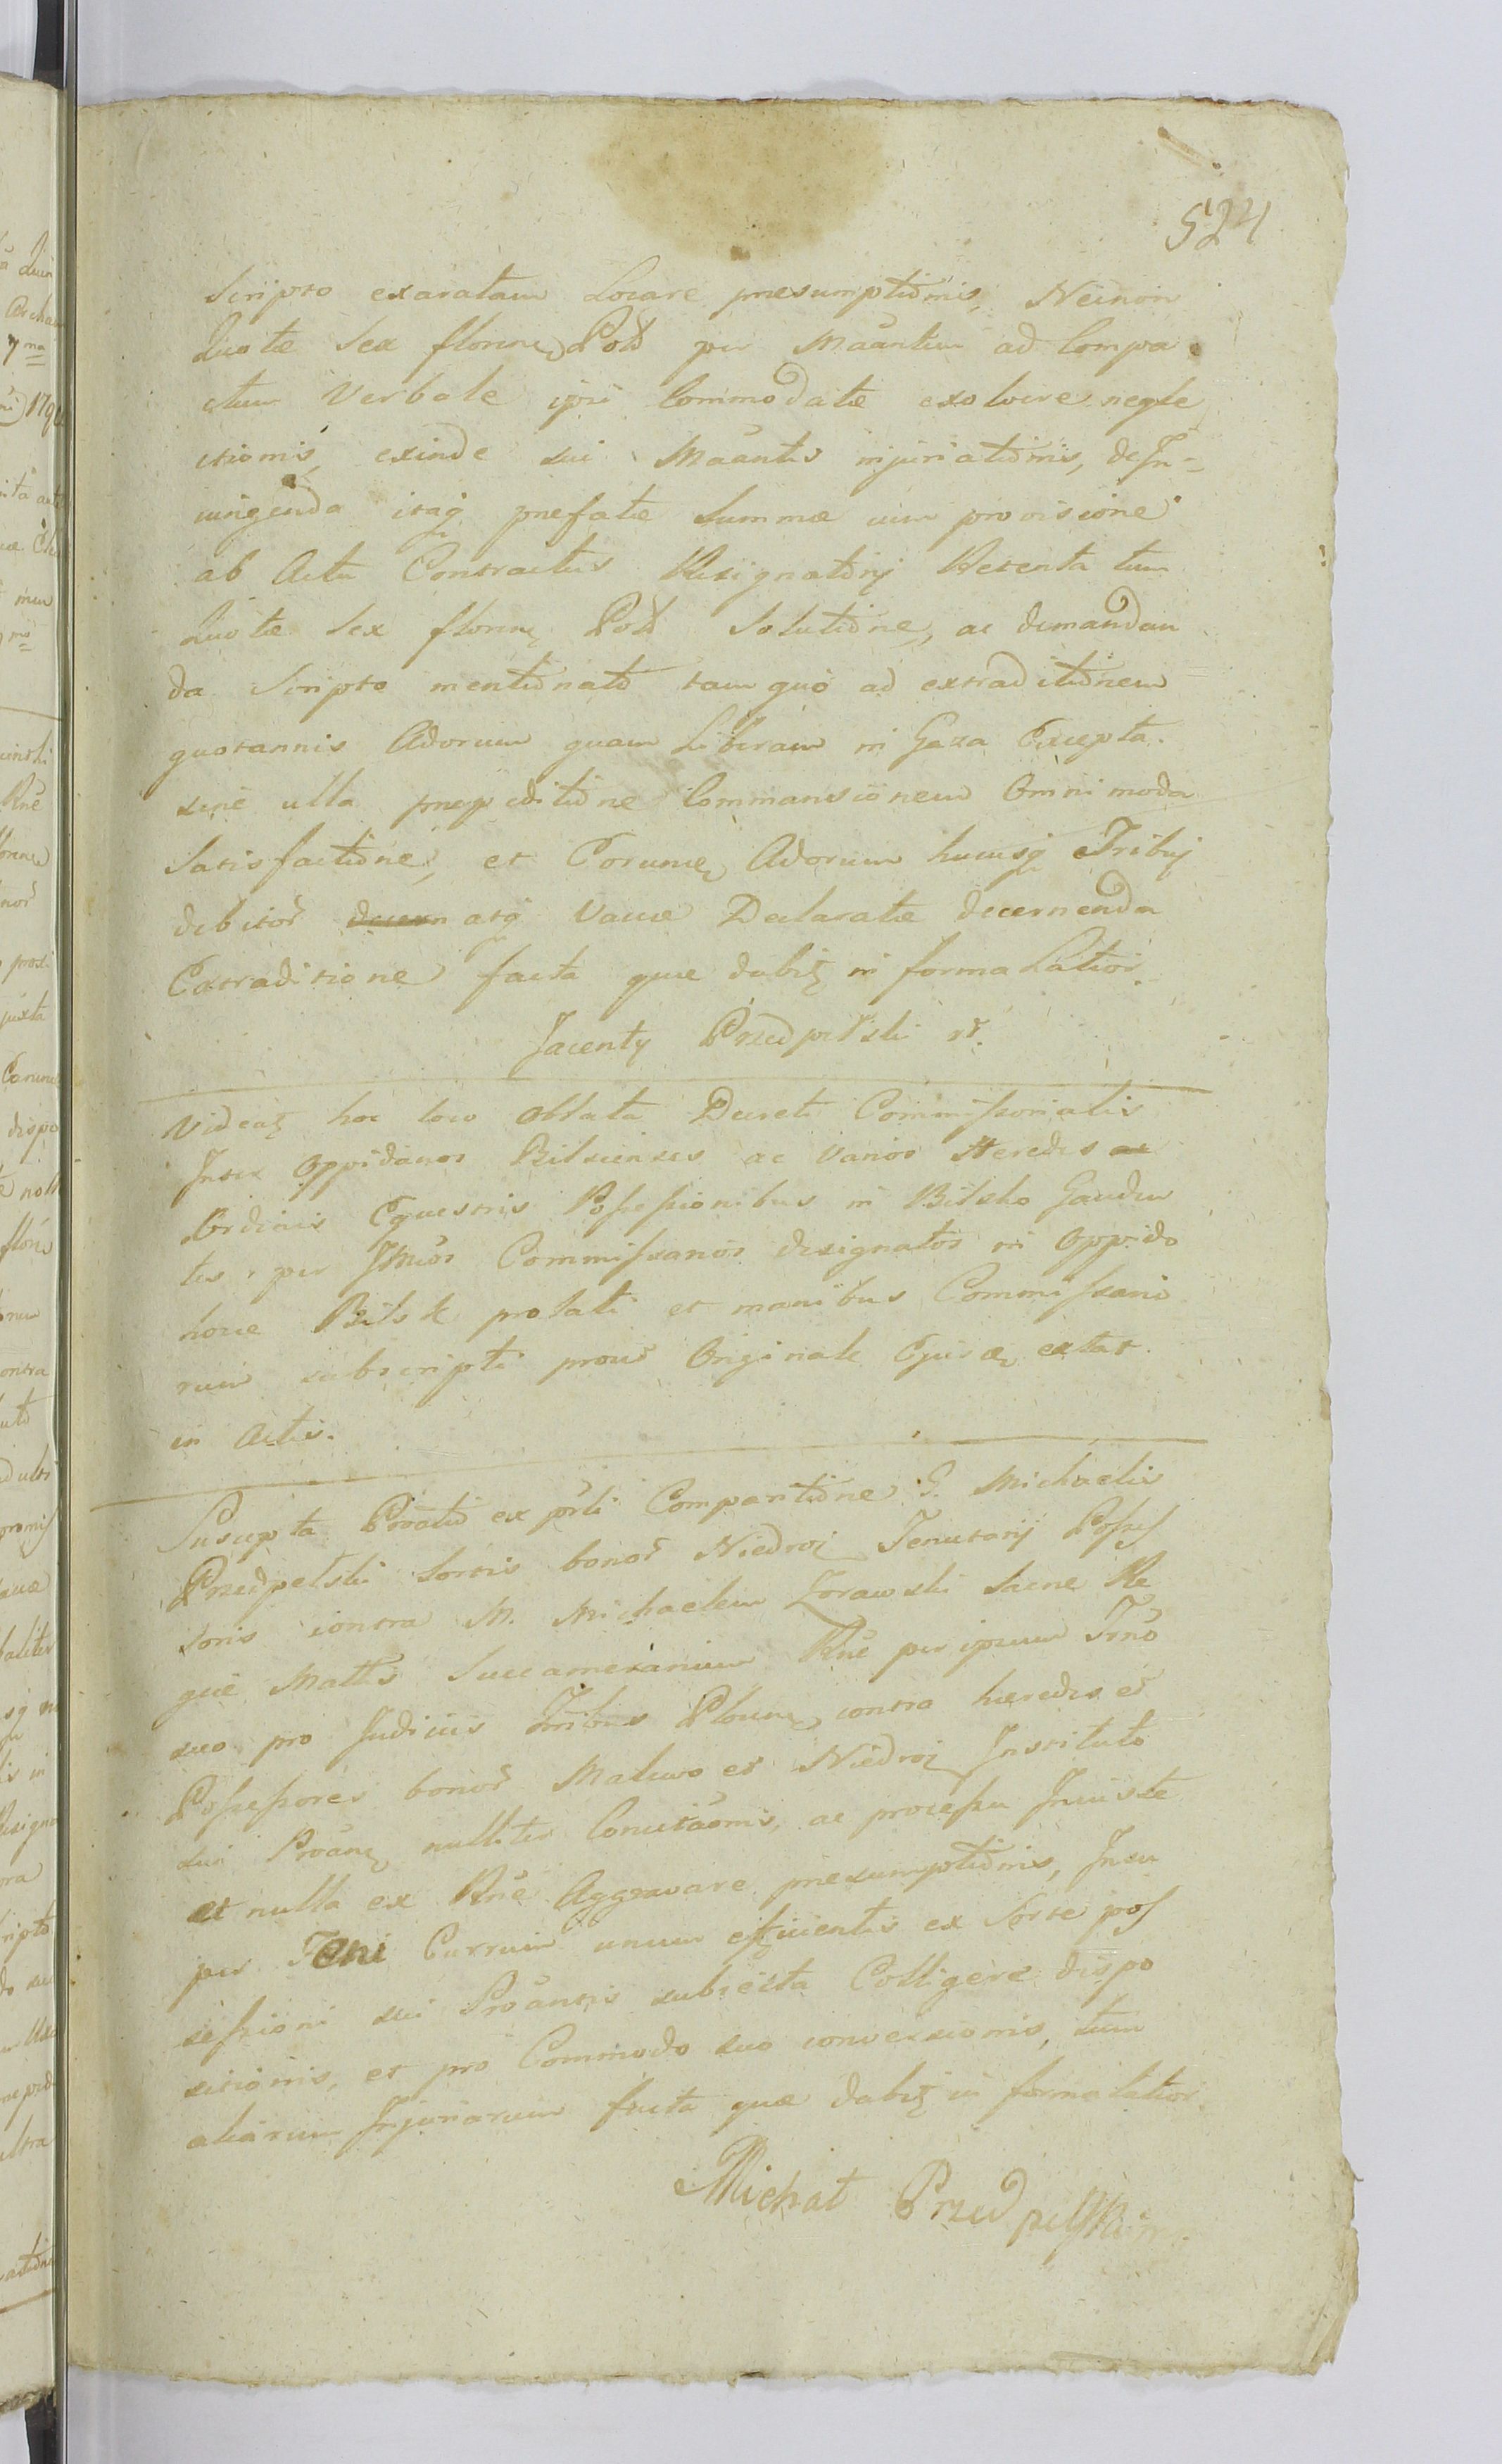 524
Scripto exaratam Locare presumptiõnis, Necnon
Quotæ Sex floren: Pol̃ per Maãntem ad Compa
ctum Verbale ipsi Commodatæ exolvere negle
ctionis, exinde sui Maãntis injuriatiõnis, de In=
iungenda itaq̃ prefatæ Summæ cum provisione
ab Actu Contractus Resignatorij Retenta tum
Quotæ Sex floren: Pol̃ Solutiõne, ac demandan
da Scripto mentiõnato tam quò ad extraditiõnem
quotannis Adorum quam Liberam in Gaza Excepta.
sine ulla prepeditiõne Commansionem Omnimoda
Satisfactiõne, et Eorumq̃ Adorum hucusq̃ Tribuj
debitor̃ decern atq̃ Vaccæ Declaratæ decernenda
Extraditione facta quæ dabit̃ in forma Latiori.
Jacenty Przedpełski r̃.
Videat̃ hoc loco Oblata Decreti Commissorialis
Inter Oppidanos Bilscenses ac Varios Heredes ac
Ordinis Equestris Possessionibus in Bilsko Gauden
tes, per Commissarios designatos in Oppido
hocce Bilsk prolati et manibus Commissario
rum subscripti prout Originale Ejusd. extat
in Actis.
Suscepta Proatio ex pr̃ti Comparitiõne G. Michaelis
Przedpełski Sortis bonor̃ Niedroz Tenutarij Posses
soris contra M. Michaelem Zorawski Sacræ Re
giæ Mattis Succamerarium Rnẽ per ipsum Trnõ
suo pro Judiciis Trribus Plocen: contra hæredes et
Possessores bonor̃ Malewo et Niedroz Instituto
sui Proãn: nulliter Concitaõnis, ac processu Injuste
et nulla ex Rnẽ Aggravare presumptiõnis, Insu
per Feni Currum unum efficientis ex Sorte pos
sessioni sui Proãntis subjecta Colligere dispo
sitionis, et pro Commodo suo conversionis, tum
aliarum Injuriarum facta quæ dabit̃ in forma latiori.
Michał Przedpełski